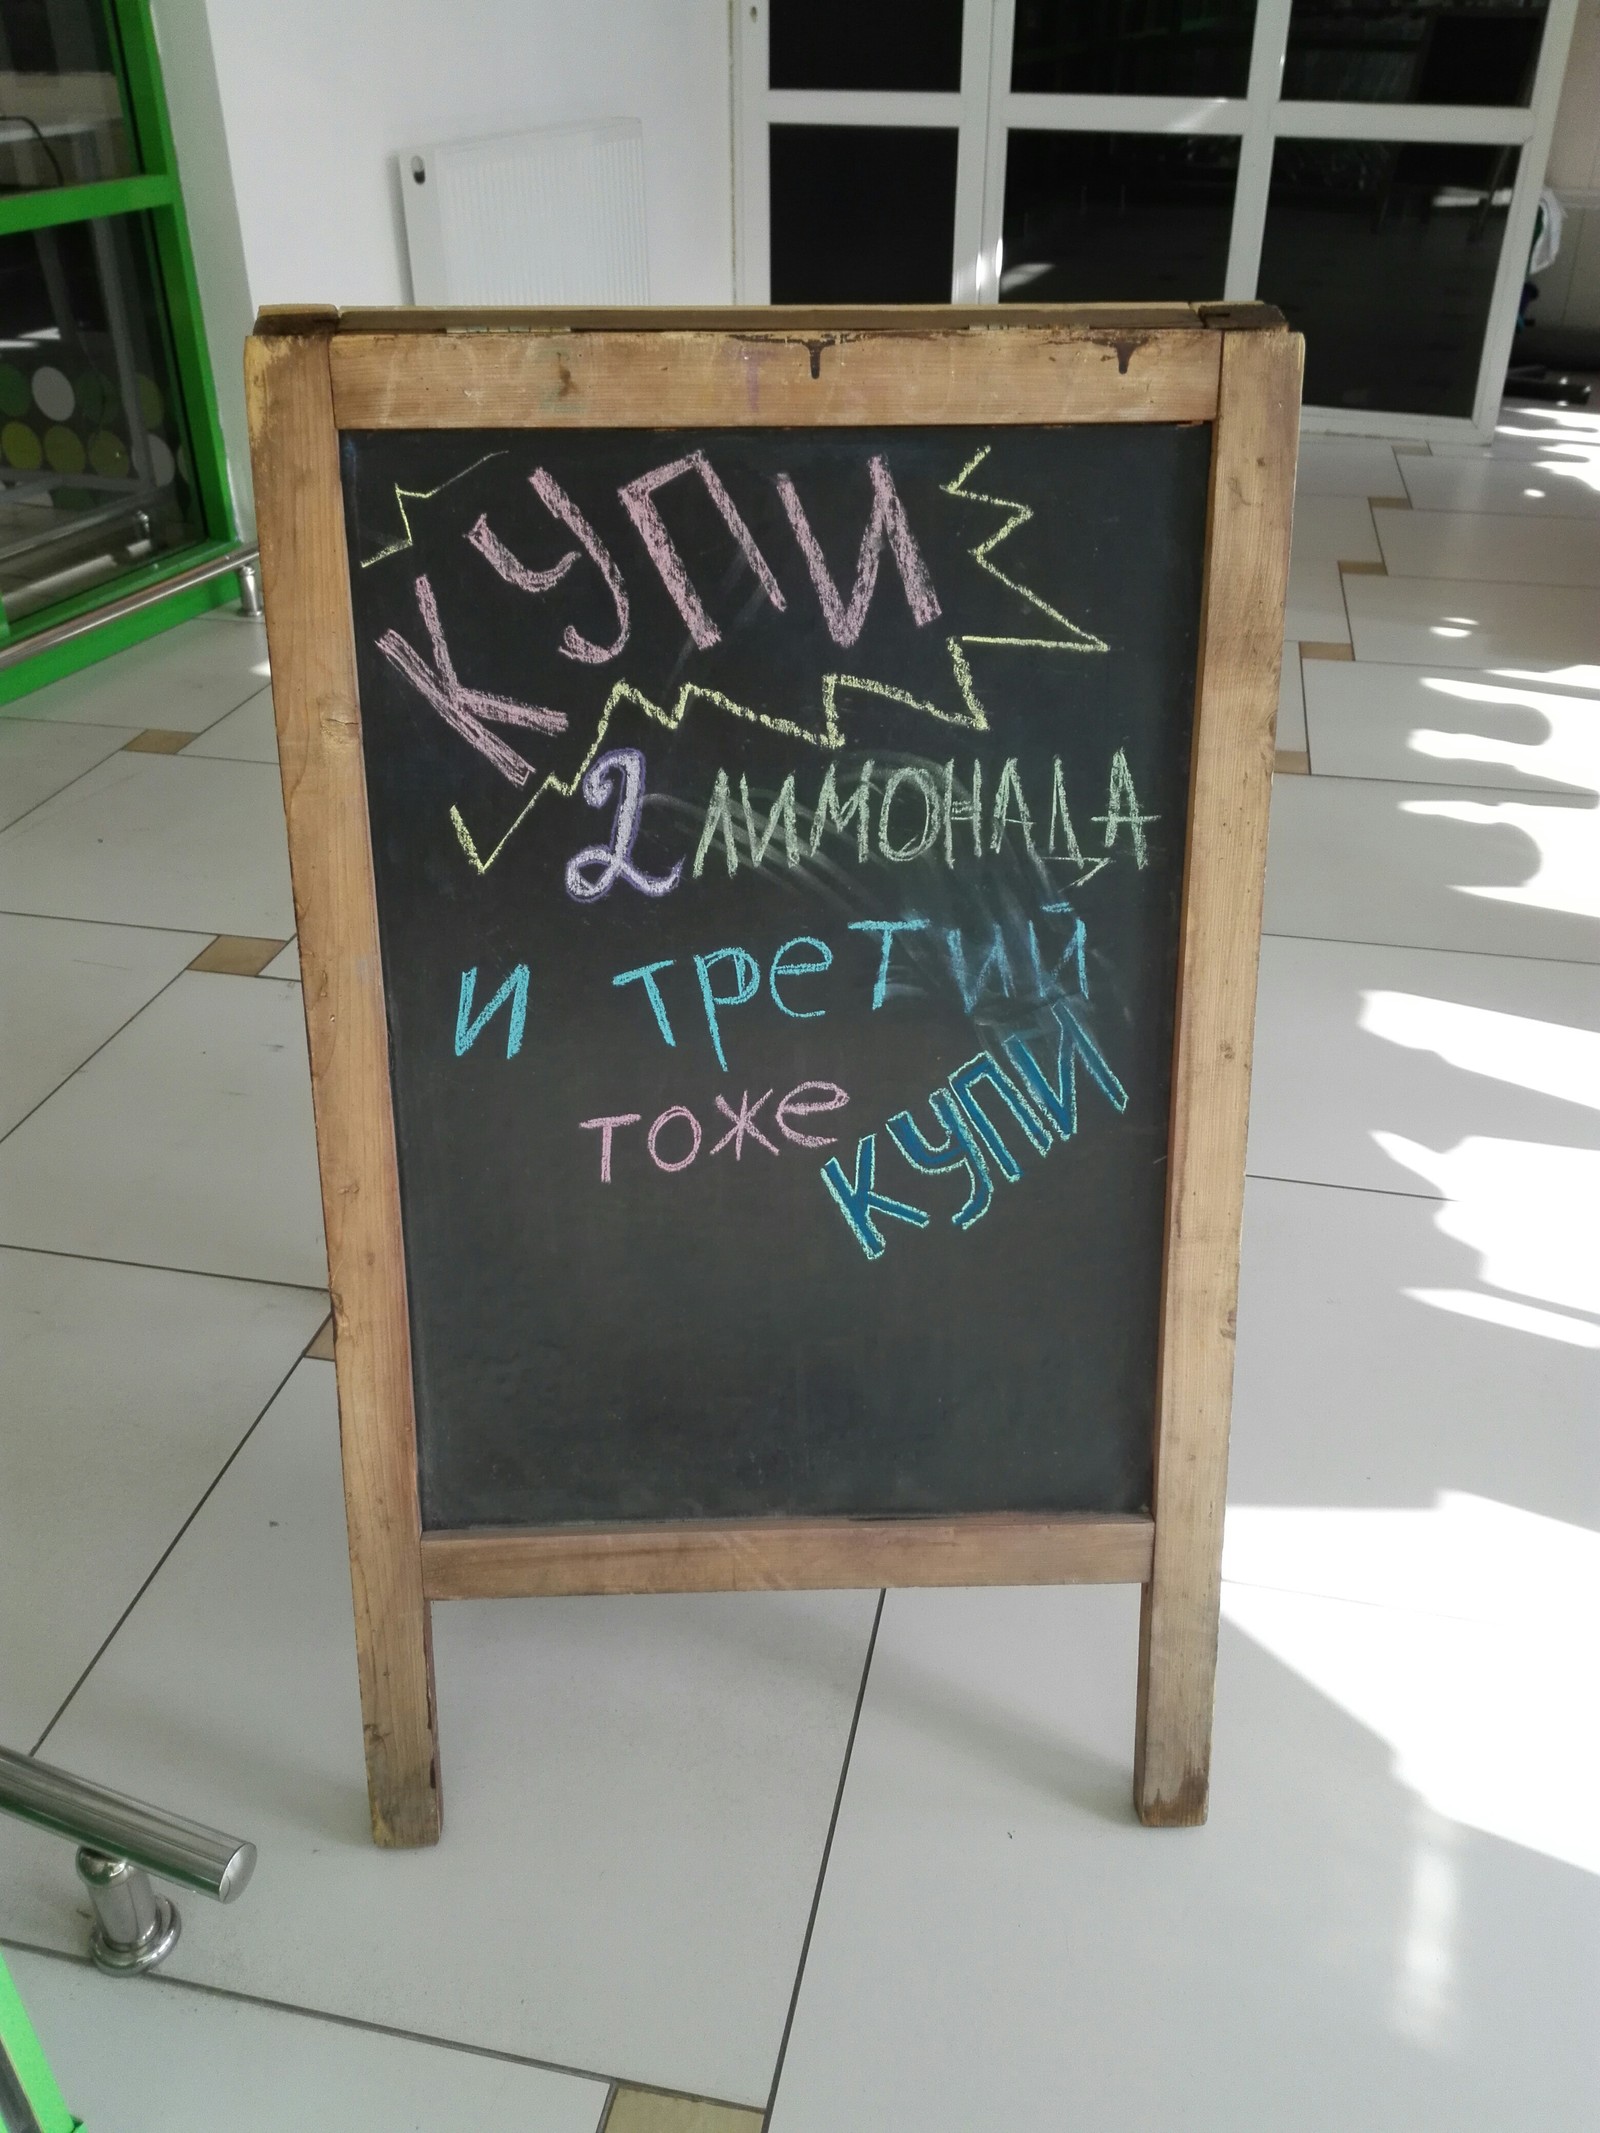 КУПИ
2 ЛИМОНАДА
и третий
тоже КУПИ